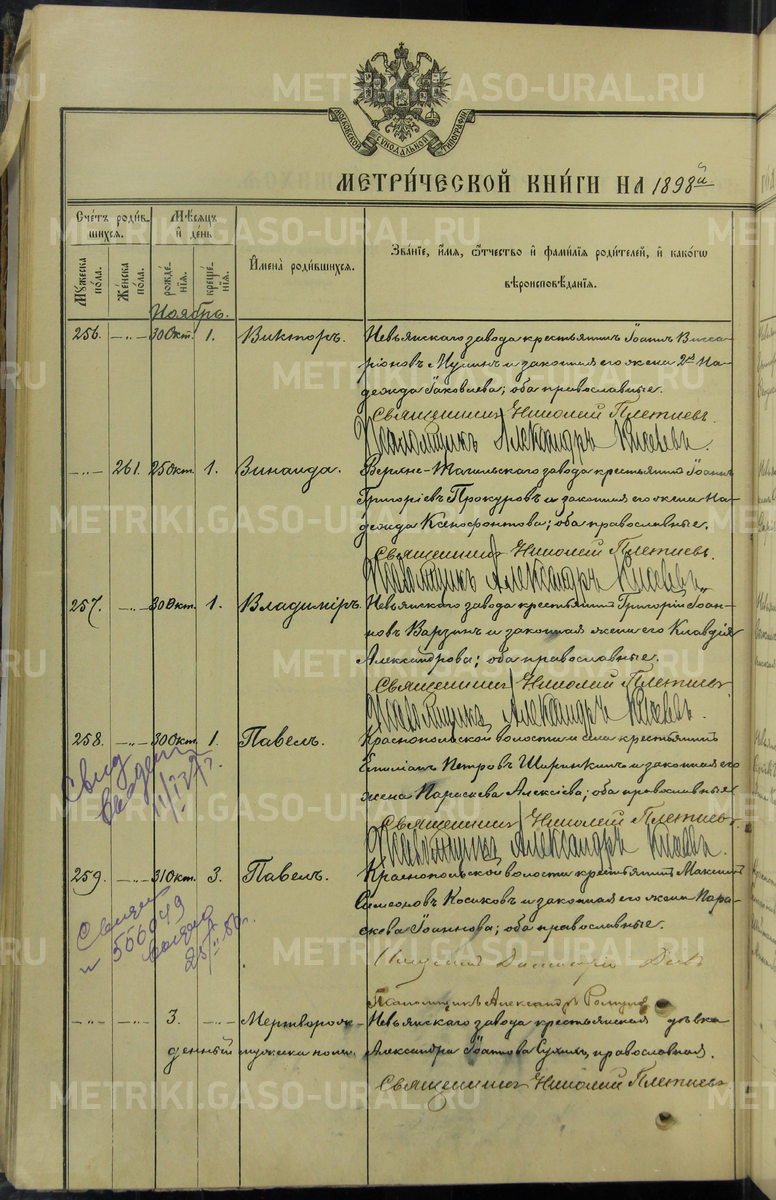 МОСКОВСКОЙ СѴНОДАЛЬНОЙ ТИПОГРАФІИ
МЕТРИ́ЧЕСКОЙ КНИ́ГИ НА 1898й
Сче́тъ роди́вшихся.
Мѣ́сяцъ и҆ де́нь
И҆мена̀ роди́вшихся.
Зва́нїе, и҆́мя, ѻ҆́тчество и҆ фами́лїя роди́телей, и҆ како́гѡ вѣроисповѣ́данїя.
Мꙋ́жеска по́ла.
Же́нска по́ла.
рожде́нїя.
креще́нїя.
Ноябрь.
256. —„— 30 Окт. 1. Викторъ. Невьянскаго завода крестьянинъ Іоаннъ Висса-
ріоновъ Мулинъ и законная его жена 2ая На-
дежда Іаковлева; оба православные.
Священникъ Николай Плетневъ.
Псаломщикъ Александръ Киселевъ.
—„— 261. 25 Окт. 1. Зинаида. Верхне-Тагильскаго завода крестьянинъ Іоаннъ
Григоріевъ Прокуровъ и законная его жена На-
дежда Ксенофонтова; оба православные.
Священникъ Николай Плетневъ.
Псаломщикъ Александръ Киселевъ
257. —„— 30 Окт. 1. Владиміръ. Невьянскаго завода крестьянинъ Григорій Іоан-
новъ Варзинъ и законная жена его Клавдія
Александрова; оба православные.
Священникъ Николай Плетневъ
Псаломщикъ Александръ Киселевъ.
258. —„— 30 Окт. 1. Павелъ. Краснопольской волости и села крестьянинъ
Емиліанъ Петровъ Ширинкинъ и законная его
жена Параскева Алексіева; оба православные
Свид
выдано
Священникъ Николай Плетневъ.
Псаломщикъ Александръ Киселевъ.
259. —„— 31 Окт. 3. Павелъ. Краснопольской волости крестьянинъ Максимъ
Симеоновъ Косиковъ и законная его жена Пара-
скева Іоаннова; оба православные.
Псаломщикъ Александръ
—„— —„— 3. —„— Мертворож- Невьянскаго завода крестьянская дѣвка
денный мужска пола. Александра Іоаннова Сухихъ, православная.
Священникъ Николай Плетневъ
METRIKI.GASO-URAL.RU